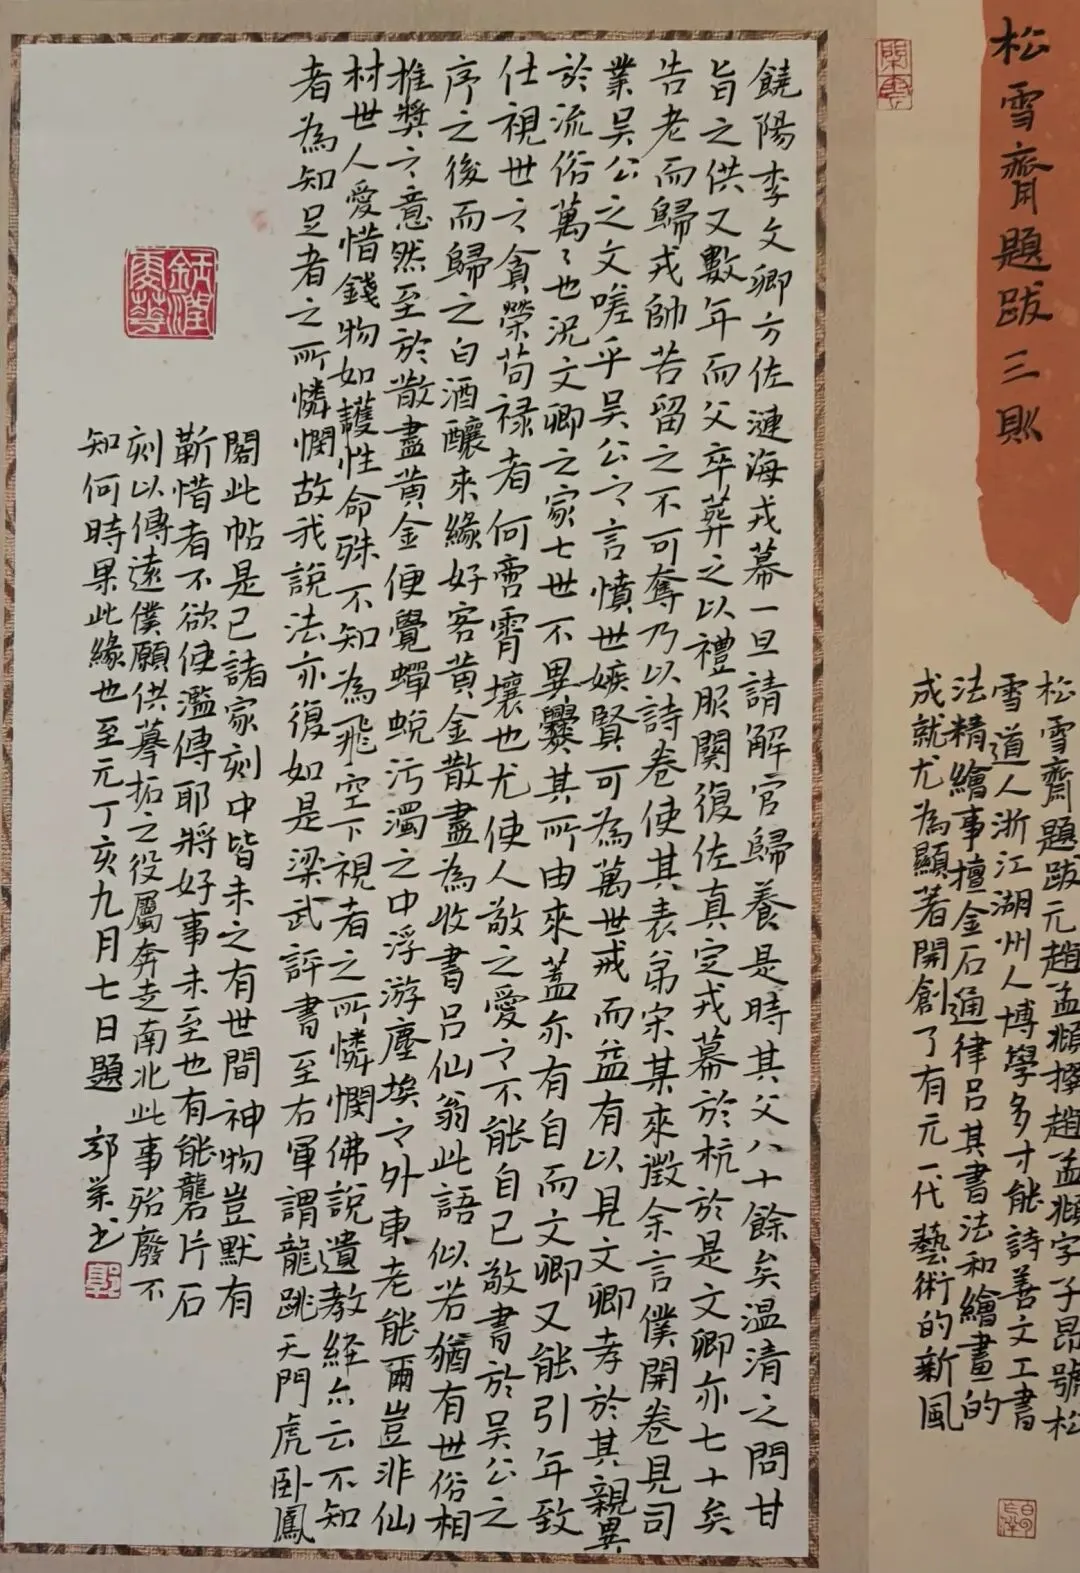 松雪齋題跋三則
松雪齋題跋元趙孟頫撰趙孟頫字子昂號松
雪道人浙江湖州人博學多才能詩善文工書
法精繪事擅金石通律呂其書法和繪畫的
成就尤為顯著開創了有元一代藝術的新風
饒陽李文卿方佐漣海戎幕一旦請解官歸養是時其父八十餘矣温清之問甘
旨之供又數年而父卒葬之以禮服闋復佐真定戎幕於杭於是文卿亦七十矣
告老而歸戎帥苦留之不可奪乃以詩卷使其表弟宋某來徵余言僕開卷見司
業吴公之文嗟乎吴公之言憤世嫉賢可為萬世戒而益有以見文卿孝於其親異
於流俗萬〻也況文卿之家七世不異爨其所由來蓋亦有自而文卿又能引年致
仕視世之貪榮苟禄者何啻霄壤也尤使人敬之愛之不能自已敬書於吴公之
序之後而歸之白酒釀來緣好客黄金散盡為收書吕仙翁此語似若猶有世俗相
推獎之意然至於散盡黄金便覺蟬蜕污濁之中浮游塵埃之外東老能爾豈非仙
材世人愛惜錢物如護性命殊不知為飛空下視者之所憐憫佛說遺教經亦云不知
者為知足者之所憐憫故我說法亦復如是梁武評書至右軍謂龍跳天門虎卧鳳
閣此帖是已諸家刻中皆未之有世間神物豈默有
靳惜者不欲使濫傳耶將好事未至也有能礱片石
刻以傳遠僕願供摹拓之役屬奔走南北此事殆廢不
知何時果此緣也至元丁亥九月七日題 郭榮書
郭